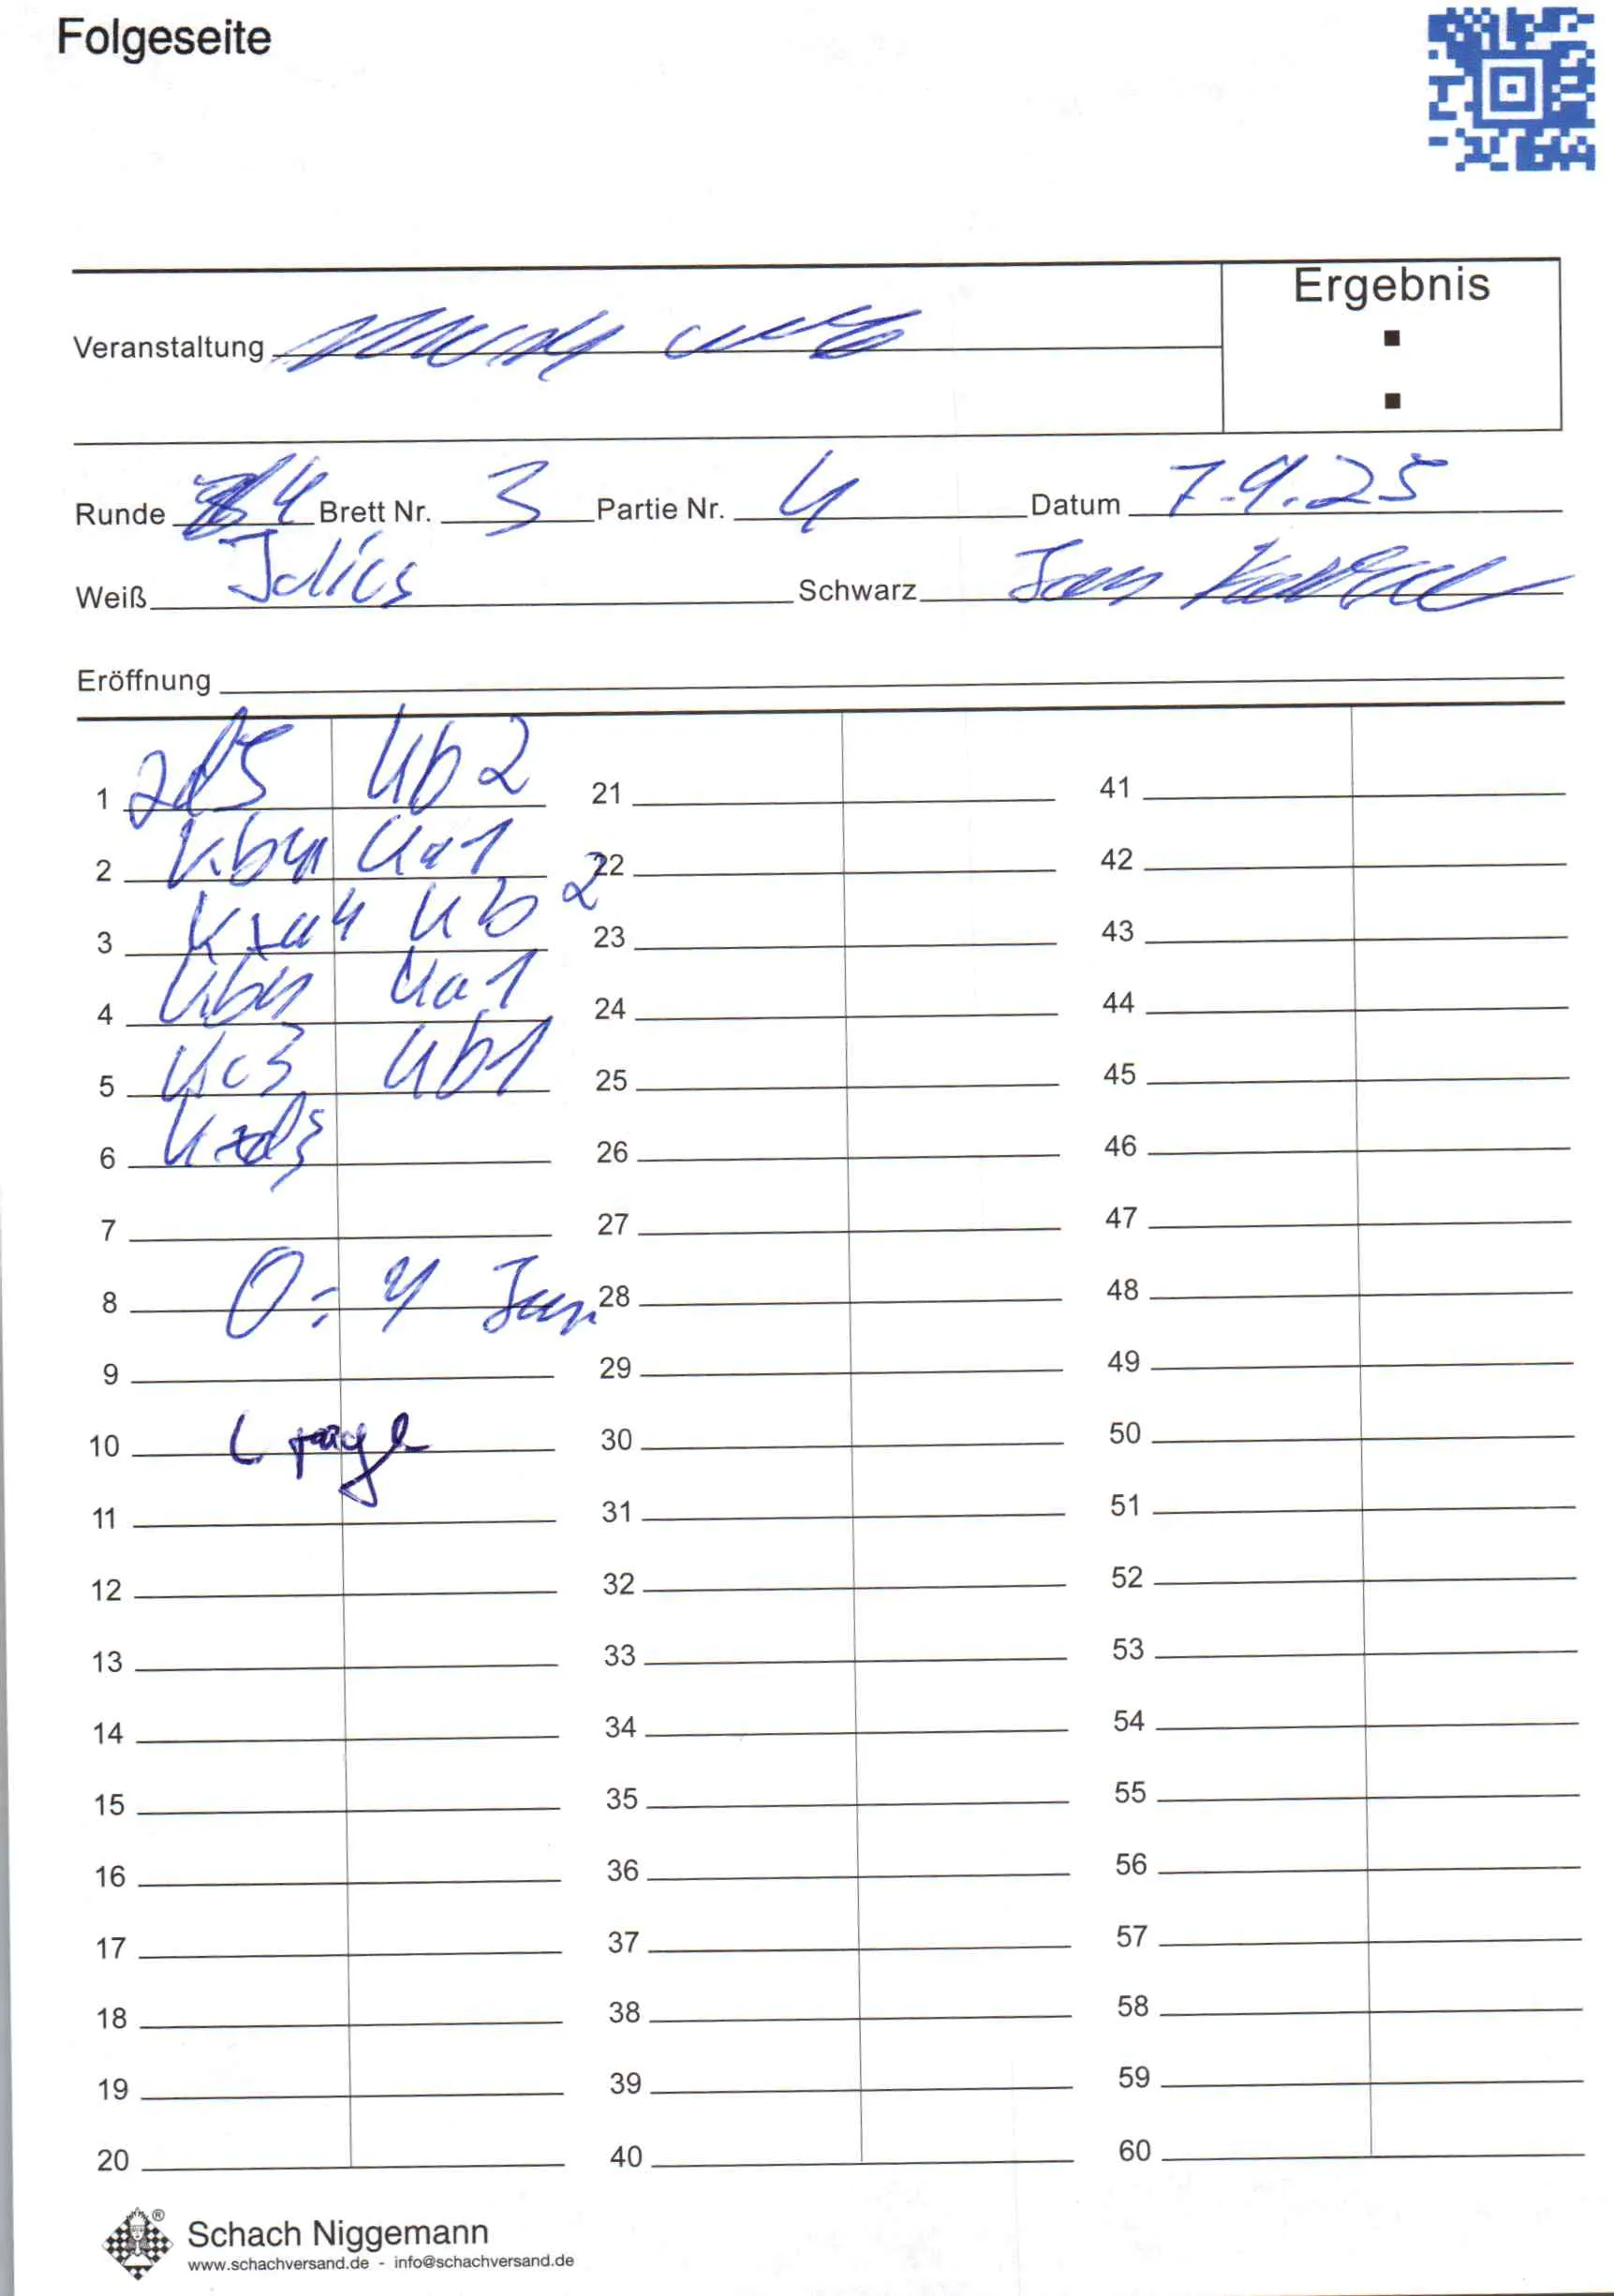 Folgeseite
Ergebnis
:
Veranstaltung
Runde 4 Brett Nr. 3 Partie Nr. 4 Datum 7.9.25
Weiß Julius Schwarz Jan
Eröffnung
1 Kb2 21 41
2 Kb4 Ka1 22 42
3 Kxa4 Kb2 23 43
4 Kb4 Ka1 24 44
5 Kc3 Kb1 25 45
6 Kxd3 26 46
7 27 47
8 0:1 Jan 28 48
9 29 49
10 30 50
11 31 51
12 32 52
13 33 53
14 34 54
15 35 55
16 36 56
17 37 57
18 38 58
19 39 59
20 40 60
Schach Niggemann
www.schachversand.de - info@schachversand.de